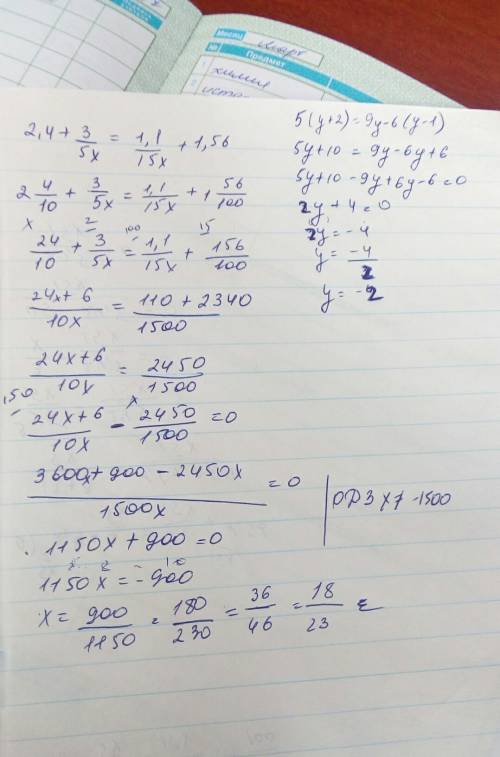 Месяц март
№ Предмет
1 химия
2 исто
2,4 + 3/5x = 1,1/15x + 1,56
2 4/10 + 3/5x = 1,1/15x + 1 56/100
x 2 100 15
24/10 + 3/5x = 1,1/15x + 156/100
24x + 6/10x = 110 + 2340/1500
24x + 6/10x = 2450/1500
150 x
24x + 6/10x - 2450/1500 = 0
3600x + 900 - 2450x/1500x = 0
1150x + 900 = 0
1150x = -900
x = 900/1150 = 180/230 = 36/46 = 18/23
ОДЗ x ≠ -1500
5(y+2) = 9y-6(y-1)
5y+10 = 9y-6y+6
5y+10-9y+6y-6=0
2y+4=0
2y=-4
y = -4/2
y = -2